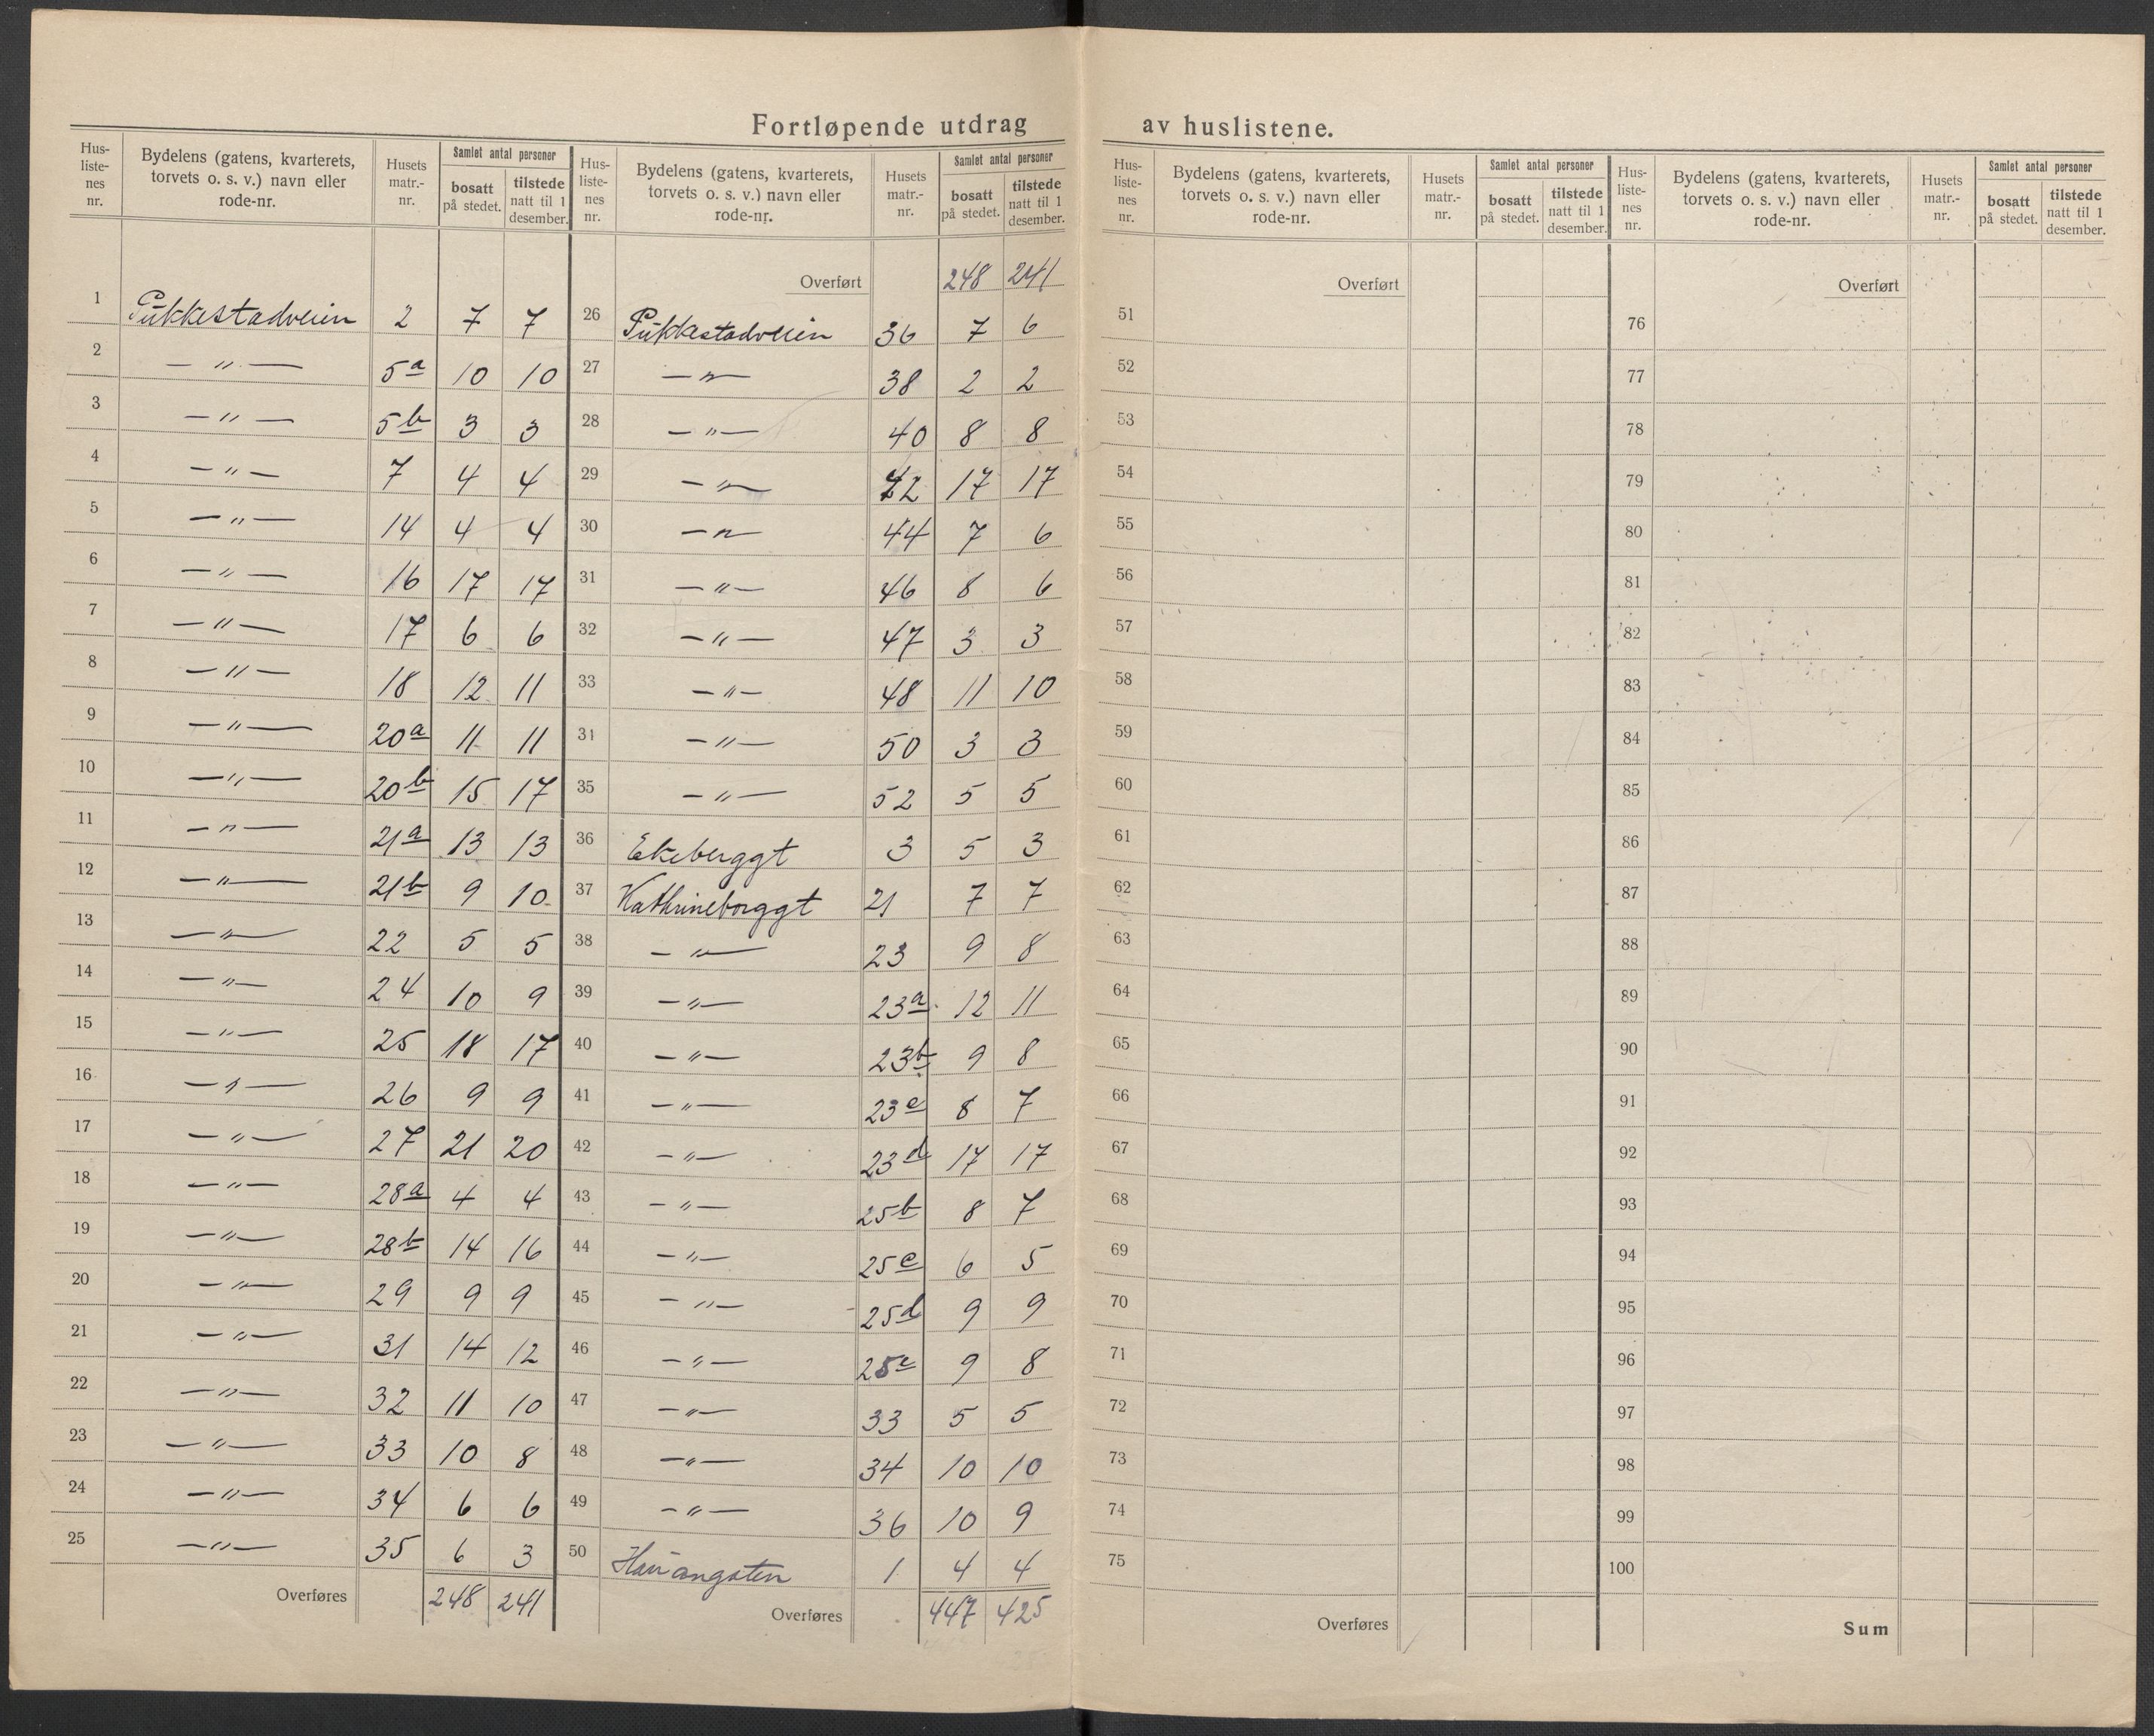 Fortløpende utdrag av huslistene.
Hus-listenes nr. | Bydelens (gatens, kvarterets, torvets o. s. v.) navn eller rode-nr. | Husets matr.-nr. | Samlet antal personer | bosatt på stedet. | tilstede natt til 1 desember.
1 Pukkestadveien 2 7 7
2 — " — 5a 10 10
3 — " — 5b 3 3
4 — " — 7 4 4
5 — " — 14 4 4
6 — " — 16 17 17
7 — " — 17 6 6
8 — " — 18 12 11
9 — " — 20a 11 11
10 — " — 20b 15 17
11 — " — 21a 13 13
12 — " — 21b 9 10
13 — " — 22 5 5
14 — " — 24 10 9
15 — " — 25 18 17
16 — " — 26 9 9
17 — " — 27 21 20
18 — " — 28a 4 4
19 — " — 28b 14 16
20 — " — 29 9 9
21 — " — 31 14 12
22 — " — 32 11 10
23 — " — 33 10 8
24 — " — 34 6 6
25 — " — 35 6 3
Overføres 248 241
Hus-listenes nr. | Bydelens (gatens, kvarterets, torvets o. s. v.) navn eller rode-nr. | Husets matr.-nr. | Samlet antal personer | bosatt på stedet. | tilstede natt til 1 desember.
Overført 248 241
26 Pukkestadveien 36 7 6
27 — " — 38 2 2
28 — " — 40 8 8
29 — " — 42 17 17
30 — " — 44 7 6
31 — " — 46 8 6
32 — " — 47 3 3
33 — " — 48 11 10
31 — " — 50 3 3
35 — " — 52 5 5
36 Ekeberggt 3 5 3
37 Kathrineborggt 21 7 7
38 — " — 23 9 8
39 — " — 23a 12 11
40 — " — 23b 9 8
41 — " — 23c 8 7
42 — " — 23d 17 17
43 — " — 25b 8 7
44 — " — 25c 6 5
45 — " — 25d 9 9
46 — " — 25e 9 8
47 — " — 33 5 5
48 — " — 34 10 10
49 — " — 36 10 9
50 1 4 4
Overføres 447 425
Hus-listenes nr. | Bydelens (gatens, kvarterets, torvets o. s. v.) navn eller rode-nr. | Husets matr.-nr. | Samlet antal personer | bosatt på stedet. | tilstede natt til 1 desember.
Overført
51
52
53
54
55
56
57
58
59
60
61
62
63
64
65
66
67
68
69
70
71
72
73
74
75
Overføres
Hus-listenes nr. | Bydelens (gatens, kvarterets, torvets o. s. v.) navn eller rode-nr. | Husets matr.-nr. | Samlet antal personer | bosatt på stedet. | tilstede natt til 1 desember.
Overført
76
77
78
79
80
81
82
83
84
85
86
87
88
89
90
91
92
93
94
95
96
97
98
99
100
Sum